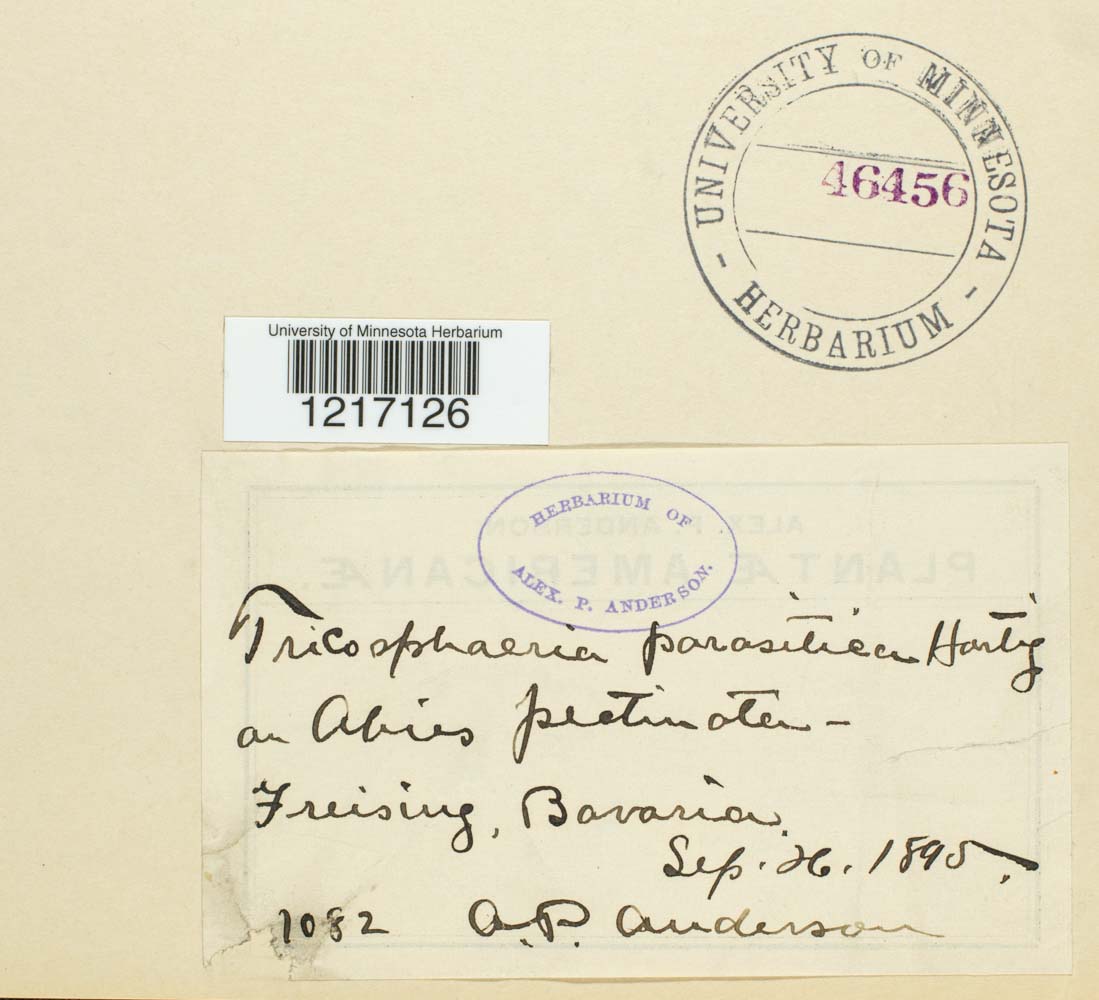 UNIVERSITY OF MINNESOTA
- HERBARIUM -
46456
University of Minnesota Herbarium
1217126
HERBARIUM OF
ALEX. P. ANDERSON.
ALEX. P. ANDERSON
PLANTÆ AMERICANÆ.
Tricosphaeria parasitica Hartig
on Abies pectinata -
Freising, Bavaria.
Sep. 26. 1895.
1082 A.P. Anderson